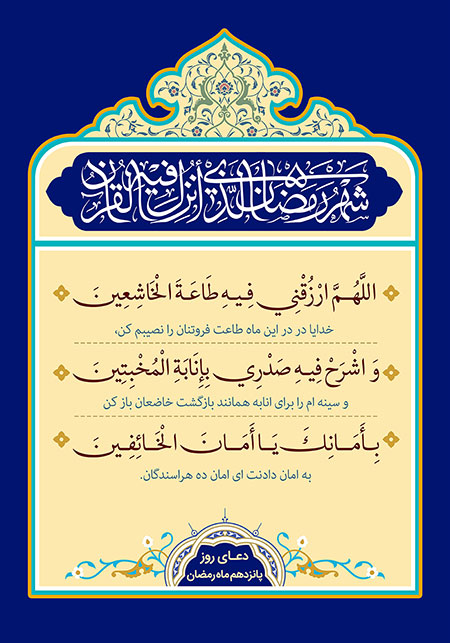 شهر رمضان الذی أنزل فیه القرآن
اللَّهُمَّ ارْزُقْنِي فِيهِ طَاعَةَ الْخَاشِعِينَ
خدایا در در این ماه طاعت فروتنان را نصیبم کن،
وَ اشْرَحْ فِيهِ صَدْرِي بِإِنَابَةِ الْمُخْبِتِينَ
و سینه ام را برای انابه همانند بازگشت خاضعان باز کن
بِأَمَانِكَ يَا أَمَانَ الْخَائِفِينَ
به امان دادنت ای امان ده هراسندگان.
دعای روز
پانزدهم ماه رمضان